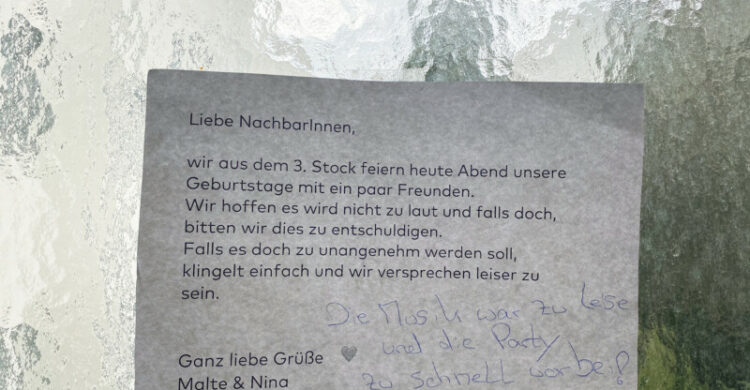 Liebe NachbarInnen,
wir aus dem 3. Stock feiern heute Abend unsere
Geburtstage mit ein paar Freunden.
Wir hoffen es wird nicht zu laut und falls doch,
bitten wir dies zu entschuldigen.
Falls es doch zu unangenehm werden soll,
klingelt einfach und wir versprechen leiser zu
sein.
Die Musik war zu leise
und die Party
zu schnell vorbei!
Ganz liebe Grüße
Malte & Nina